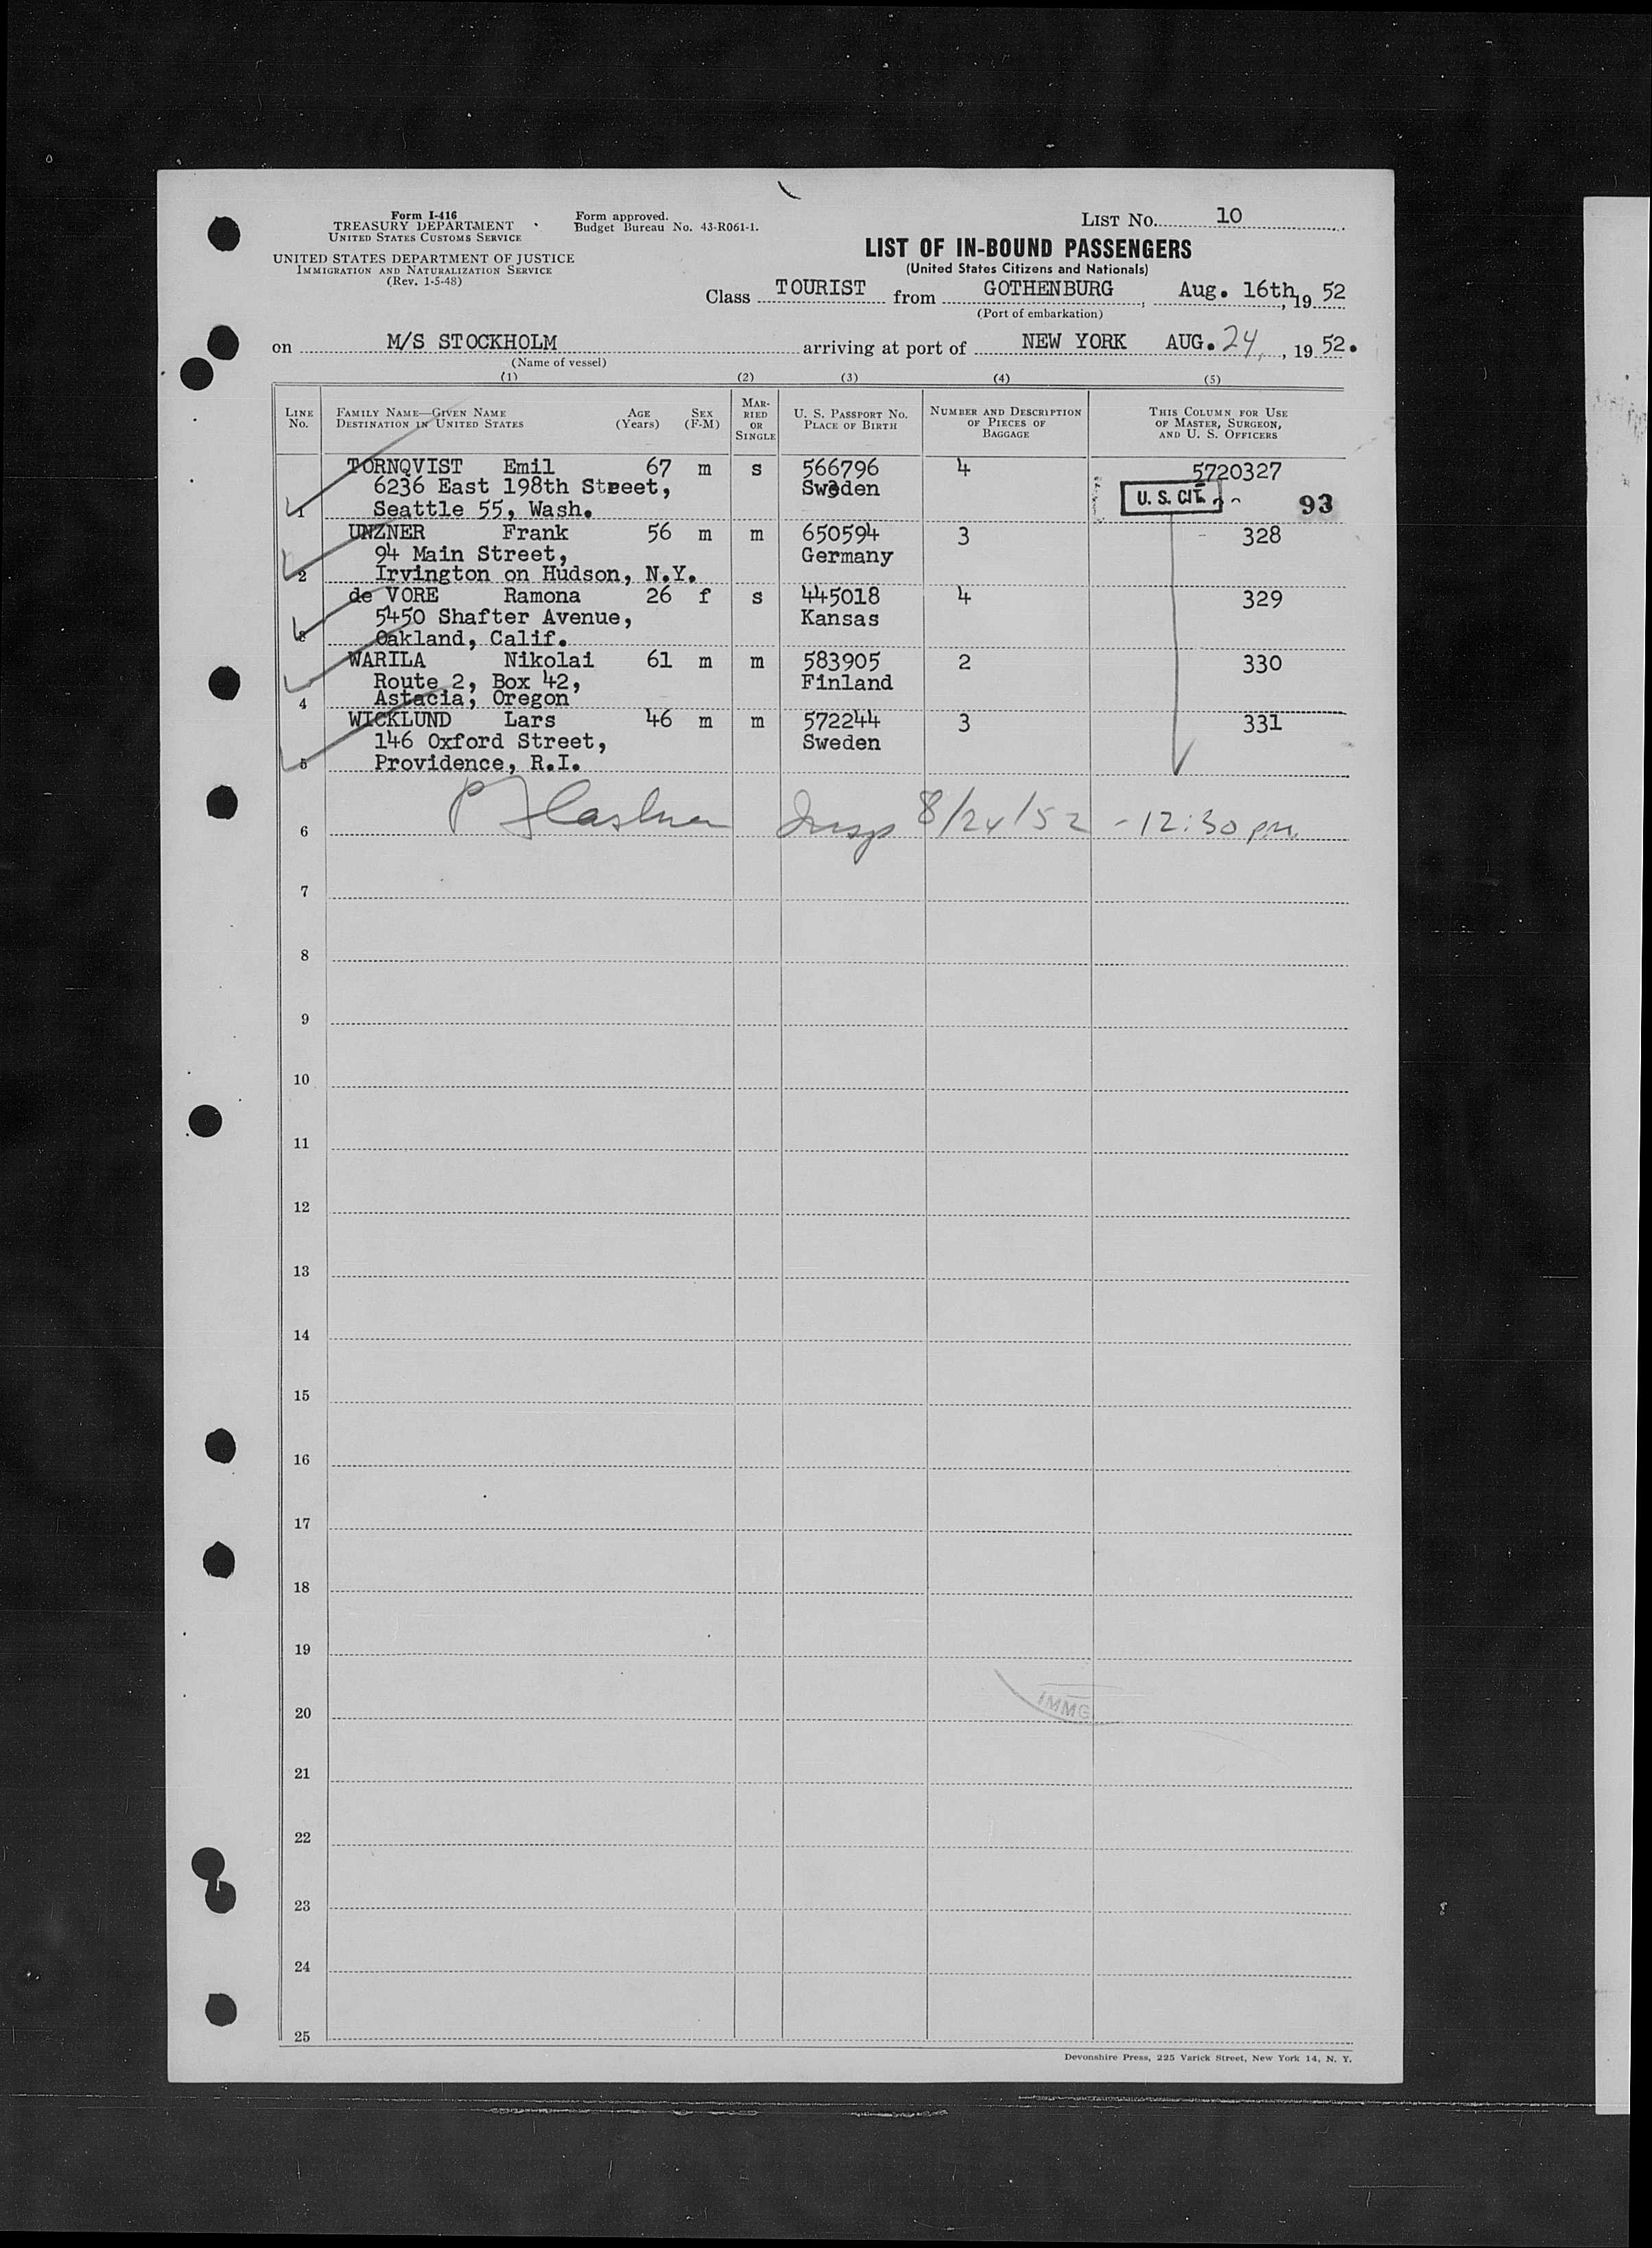 Form I-416
TREASURY DEPARTMENT
UNITED STATES CUSTOMS SERVICE
UNITED STATES DEPARTMENT OF JUSTICE
IMMIGRATION AND NATURALIZATION SERVICE
(Rev. 1-5-48)
Form approved.
Budget Bureau No. 43-R061-1.
LIST No. 10
LIST OF IN-BOUND PASSENGERS
(United States Citizens and Nationals)
Class TOURIST from GOTHENBURG, Aug. 16th, 19 52
(Port of embarkation)
on M/S STOCKHOLM arriving at port of NEW YORK AUG. 24, , 19 52.
(Name of vessel)
(1) (2) (3) (4) (5)
LINE No. FAMILY NAME—GIVEN NAME DESTINATION IN UNITED STATES AGE (Years) SEX (F-M) MARRIED OR SINGLE U. S. PASSPORT No. PLACE OF BIRTH NUMBER AND DESCRIPTION OF PIECES OF BAGGAGE THIS COLUMN FOR USE OF MASTER, SURGEON, AND U. S. OFFICERS
TORNQVIST Emil 67 m s 566796 4 5720327
6236 East 198th Street, Sweden U. S. CIT. 93
1 Seattle 55, Wash.
UNZNER Frank 56 m m 650594 3 328
94 Main Street, Germany
2 Irvington on Hudson, N.Y.
de VORE Ramona 26 f s 445018 4 329
5450 Shafter Avenue, Kansas
3 Oakland, Calif.
WARILA Nikolai 61 m m 583905 2 330
Route 2, Box 42, Finland
4 Astacia, Oregon
WICKLUND Lars 46 m m 572244 3 331
146 Oxford Street, Sweden
5 Providence, R.I.
6 Insp 8/24/52 - 12:30 pm.
7
8
9
10
11
12
13
14
15
16
17
18
19
20 IMMG
21
22
23
24
25
Devonshire Press, 225 Varick Street, New York 14, N. Y.